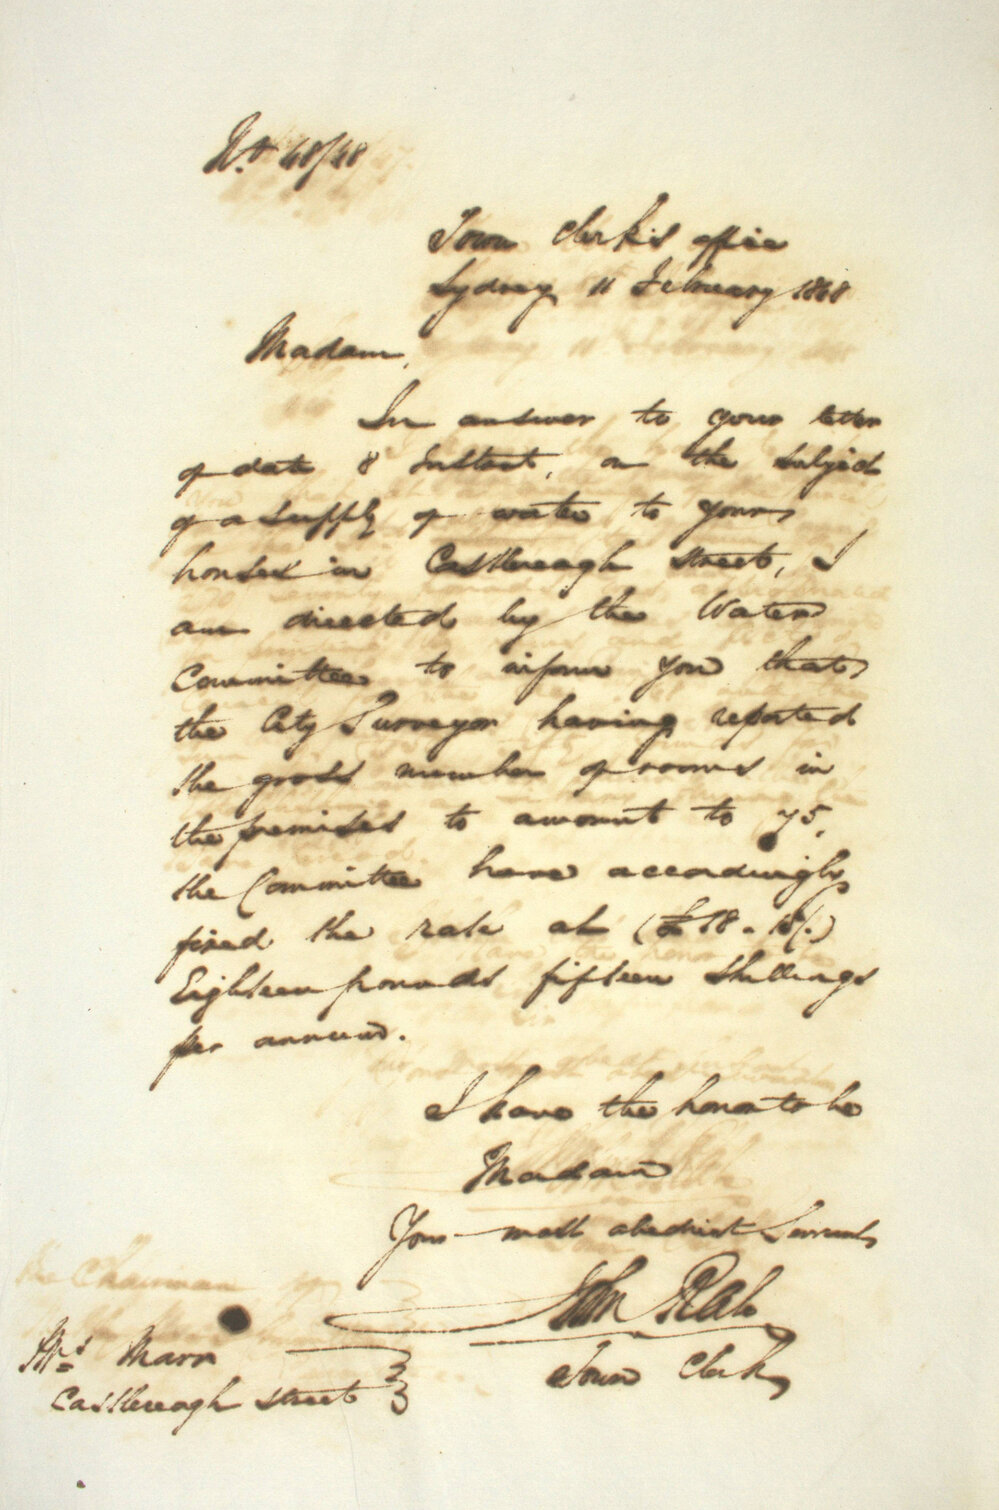 No 48/48
Town Clerk's office
Sydney 11 February 1848
Madam,
In answer to your letter
of date 8 Instant, on the subject
of a supply of water to your
houses in Castlereagh Street, I
am directed by the Water
Committee to inform you that
the City Surveyor having reported
the gross number of rooms in
the premises to amount to 75,
the Committee have accordingly
fixed the rate at (£18.15/.)
Eighteen pounds fifteen Shillings
per annum.
I have the honor to be
Madam
Your most obedient Servant
John Rae
Town Clerk
Mrs Marr
Castlereagh Street